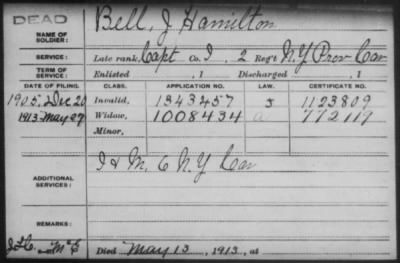 DEAD
NAME OF SOLDIER:
Bell, J Hamilton
SERVICE:
Late rank, Capt Co. I, 2 Reg't N.Y Prov Cav
TERM OF SERVICE:
Enlisted , 1 Discharged , 1
DATE OF FILING. CLASS. APPLICATION NO. LAW. CERTIFICATE NO.
1905, Dec 20 Invalid, 1343457 1123809
1913 May 27 Widow, 1008434 a 772119
Minor,
ADDITIONAL SERVICES:
I & M, 6 N.Y Cav
REMARKS:
Died May 13, 1913, at